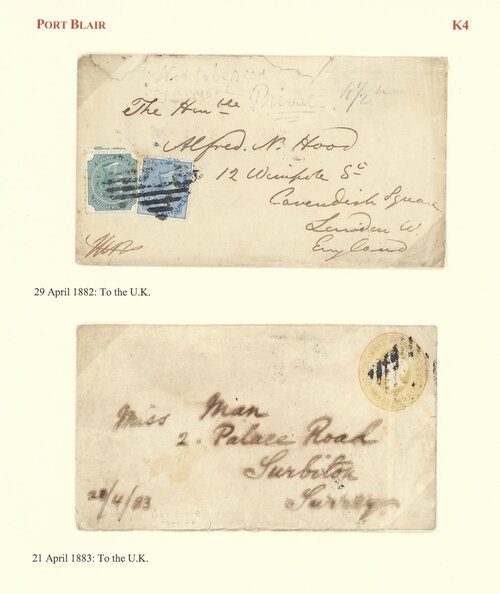 PORT BLAIR
K4
Private
4½
The Honble
Alfred. N. Hood
12 Wimpole St
Cavendish Square
London W.
England
29 April 1882: To the U.K.
Miss Man
2. Palace Road
Surbiton
Surrey
21/4/83
21 April 1883: To the U.K.